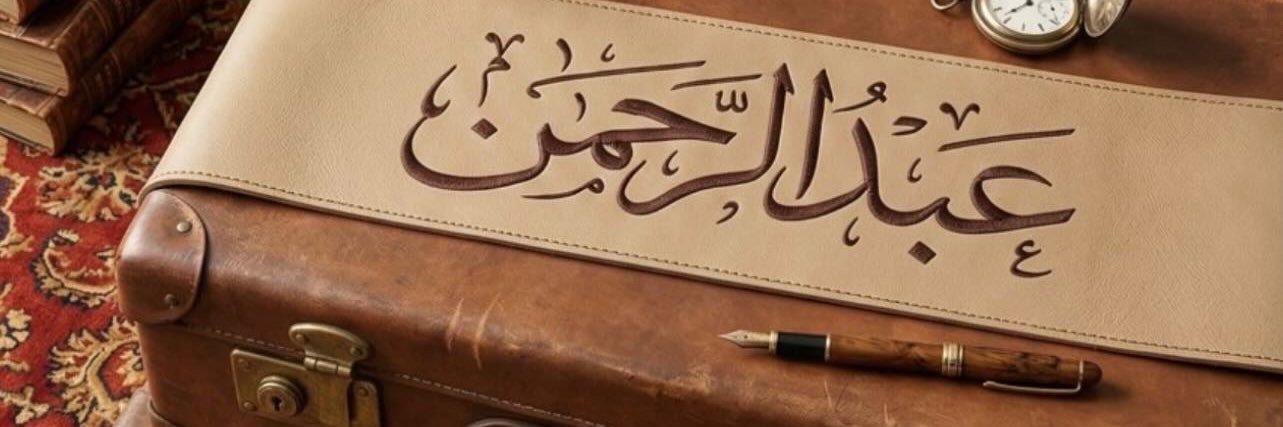 عَبْدُ الرَّحمن